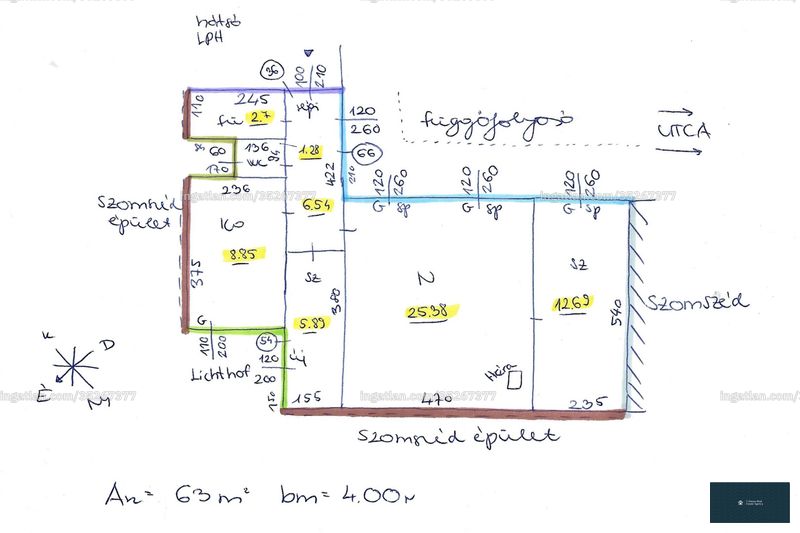 hátsó
LPH
36
100
210
110
245
előszoba
fü 2.7
120
260
függőfolyosó
UTCA
60
170
136
WC
94
1.28
66
422
210
120
260
120
260
120
260
G sp
G sp
G sp
236
Szomszéd
épület
6.54
Ko
8.85
375
sz
N
sz
380
25.38
12.69
540
Szomszéd
5.89
G
110
200
54
120
200
Lichthof
Héra
150
155
470
235
K
D
É
NY
Szomszéd épület
An= 63 m² bm= 4.00 m
ingatlan.com/35267377
ingatlan.com/35267377
ingatlan.com/35267377
ingatlan.com/35267377